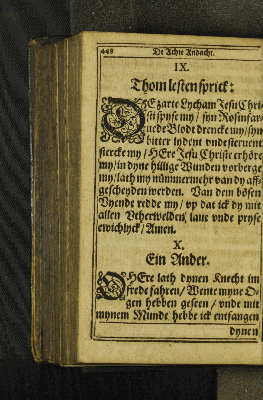 448
De Achte Andacht.
IX.
Thom lesten sprick:
DE zarte Lycham Jesu Chri-
sti spyse my / syn Rosinfar-
uede Blodt drencke my / syn
bitter lydent vnde steruent
stercke my / HEre Jesu Christe erhöre
my / in dyne hillige Wunden vorberge
my / lath my nümmermehr van dy aff-
gescheyden werden. Van dem bösen
Vyende redde my / vp dat ick dy mit
allen Vtherwelden / laue vnde pryse
ewichlyck / Amen.
X.
Ein Ander.
HEre lath dynen Knecht im
frede fahren / Wente myne O-
gen hebben geseen / vnde mit
mynem Munde hebbe ick entfangen
dynen